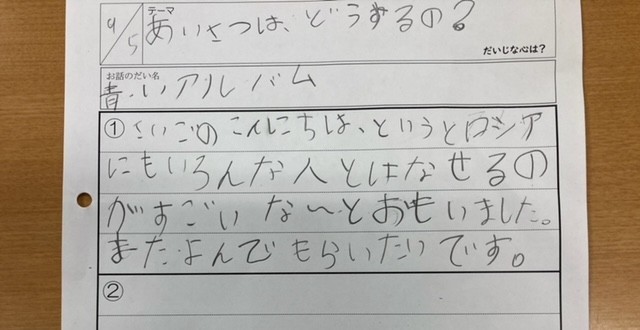 9/5
テーマ
あいさつは、どうするの?
だいじな心は?
お話のだい名
青いアルバム
① さいごのこんにちは、というとロシア
にもいろんな人とはなせるの
がすごいな〜とおもいました。
またよんでもらいたいです。
②